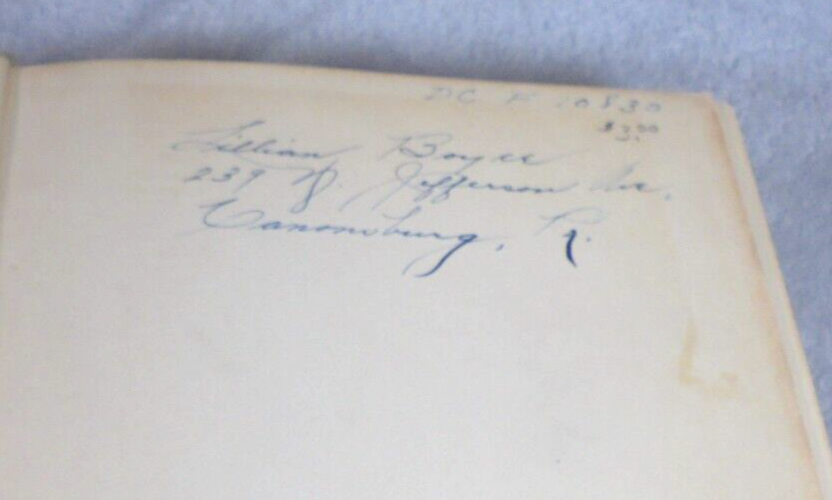 DC F 10830
$3.00
Lillian Boyce
239 N. Jefferson Ave.
Canonsburg, Pa.